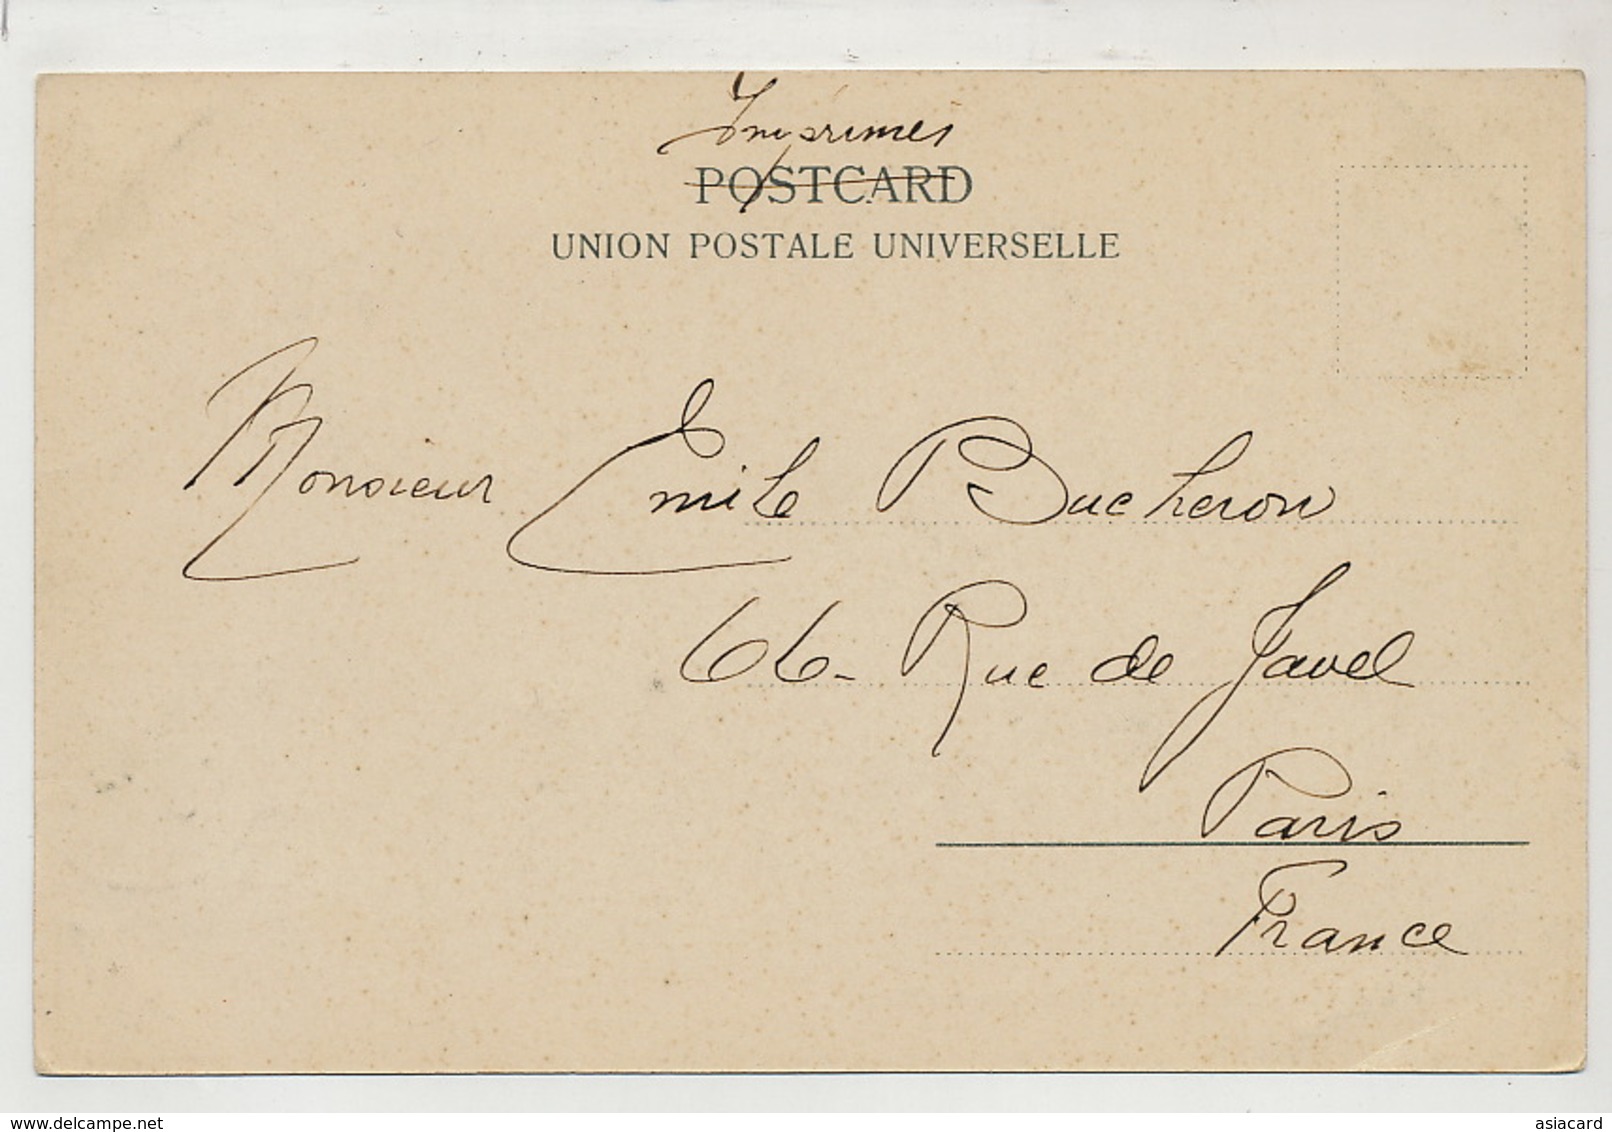 Imprimés
POSTCARD
UNION POSTALE UNIVERSELLE
Monsieur Emile Bucheron
66 - Rue de Javel
Paris
France
delcampe.net
asiacard